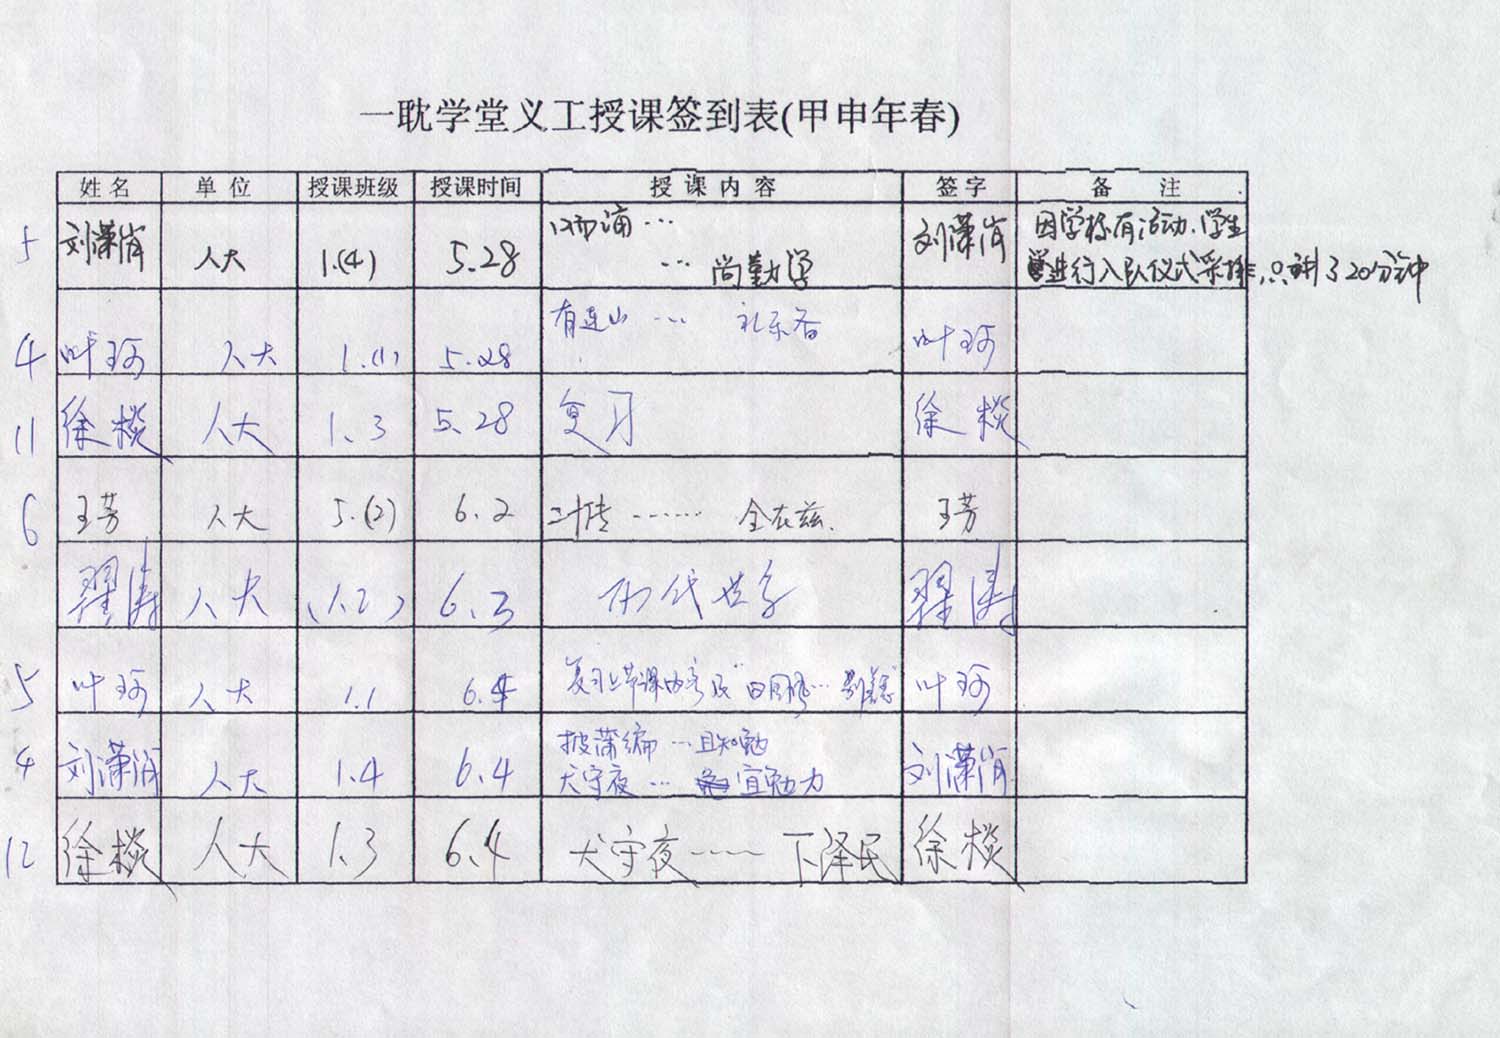 一耽学堂义工授课签到表(甲申年春)
姓名 单位 授课班级 授课时间 授课内容 签字 备注
5 刘潇肖 人大 1.(4) 5.28 口而诵… 刘潇肖 因学校有活动、学生
…尚勤学 进行入队仪式采排,只剩了20分钟
4 叶珂 人大 1.(1) 5.28 有连山… 礼乐备 叶珂
11 徐棪 人大 1.3 5.28 复习 徐棪
6 王芳 人大 5.(2) 6.2 三传……全在兹. 王芳
翟涛 人大 (1.2) 6.3 翟涛
5 叶珂 人大 1.1 6.4 复习上节课内容及"曰国风… 叶珂
4 刘潇肖 人大 1.4 6.4 披蒲编…且知勉 刘潇肖
犬守夜…宜勉力
12 徐棪 人大 1.3 6.4 犬守夜——下泽民 徐棪